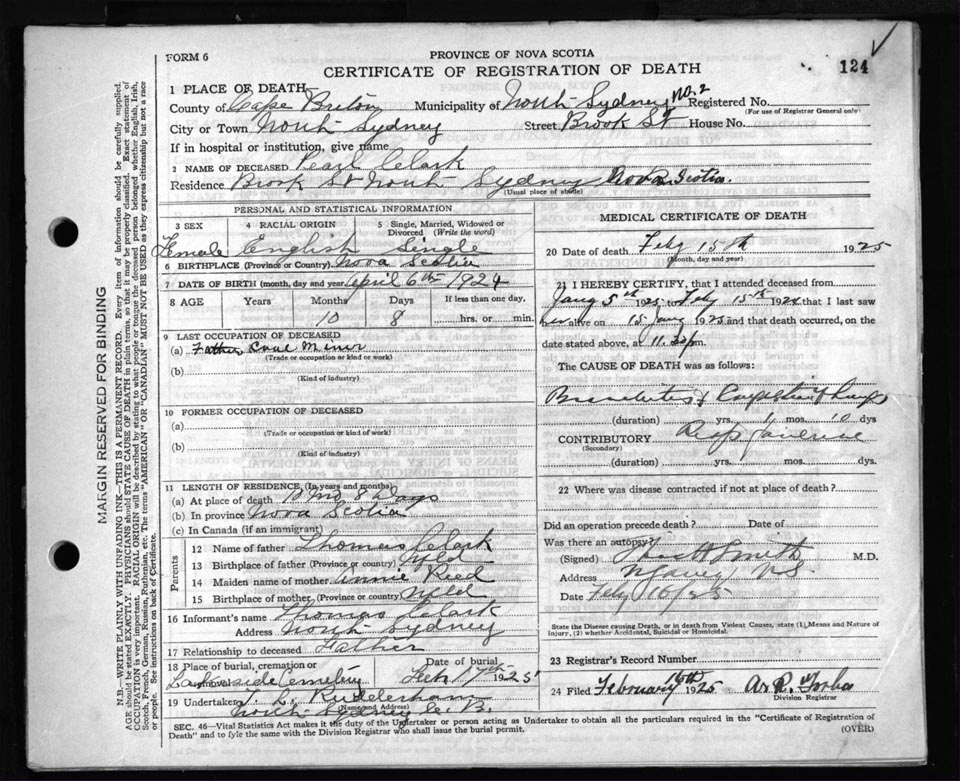 FORM 6
PROVINCE OF NOVA SCOTIA
124
CERTIFICATE OF REGISTRATION OF DEATH
1 PLACE OF DEATH
County of Cape Breton Municipality of North Sydney No. 2 Registered No.
(For use of Registrar General only)
City or Town North Sydney Street Brook St House No.
If in hospital or institution, give name
2 NAME OF DECEASED Pearl Clark
Residence Brook St North Sydney Nova Scotia.
(Usual place of abode)
PERSONAL AND STATISTICAL INFORMATION
3 SEX 4 RACIAL ORIGIN 5 Single, Married, Widowed or Divorced (Write the word)
Female English Single
6 BIRTHPLACE (Province or Country) Nova Scotia
7 DATE OF BIRTH (month, day and year) April 6th 1924
8 AGE Years Months Days If less than one day,
10 8 hrs. or min.
9 LAST OCCUPATION OF DECEASED
(a) Father Coal Miner
(Trade or occupation or kind or work)
(b)
(Kind of industry)
10 FORMER OCCUPATION OF DECEASED
(a)
(Trade or occupation or kind of work)
(b)
(Kind of industry)
11 LENGTH OF RESIDENCE (In years and months)
(a) At place of death 10 mo 8 days
(b) In province Nova Scotia
(c) In Canada (if an immigrant)
Parents
12 Name of father Thomas Clark
13 Birthplace of father (Province or country) Nfld
14 Maiden name of mother Annie Reed
15 Birthplace of mother (Province or country) Nfld
16 Informant's name Thomas Clark
Address North Sydney
17 Relationship to deceased Father
18 Place of burial, cremation or Date of burial
Lakeside Cemetery Feb 17th 1925
19 Undertaker J. L. Rudderham
(Name and Address)
North Sydney C. B.
MEDICAL CERTIFICATE OF DEATH
20 Date of death Feby 15th 1925
(Month, day and year)
21 I HEREBY CERTIFY, that I attended deceased from
Jany 5th 1925, to Feby 15th 1924 that I last saw
her alive on 15 Jany 1925 and that death occurred, on
the date stated above, at 11.30 p m.
The CAUSE OF DEATH was as follows:
Bronchitis & Congestion of Lungs
(duration) yrs. 1 mos. 10 dys
CONTRIBUTORY Resp
(Secondary)
(duration) yrs. mos. dys.
22 Where was disease contracted if not at place of death?
Did an operation precede death? Date of
Was there an autopsy?
(Signed) Smith M.D.
Address N.S.
Date Feby 16/25
State the Disease causing Death, or in death from Violent Causes, state (1) Means and Nature of Injury, (2) whether Accidental, Suicidal or Homicidal.
23 Registrar's Record Number
24 Filed February 16th 1925 A. R.
Division Registrar
SEC. 46—Vital Statistics Act makes it the duty of the Undertaker or person acting as Undertaker to obtain all the particulars required in the "Certificate of Registration of
Death" and to fyle the same with the Division Registrar who shall issue the burial permit. (OVER)
MARGIN RESERVED FOR BINDING
N.B.—WRITE PLAINLY WITH UNFADING INK—THIS IS A PERMANENT RECORD. Every item of information should be carefully supplied.
AGE should be stated EXACTLY. PHYSICIANS should STATE CAUSE OF DEATH in plain terms, so that it may be properly classified. Exact statement of
OCCUPATION is very important. RACIAL ORIGIN will be described by stating to what people or tongue the deceased person belonged whether English, Irish,
Scotch, French, German, Russian, Ruthenian, etc. The terms "AMERICAN" OR "CANADIAN" MUST NOT BE USED as they express citizenship but not a race
or people. See instructions on back of Certificate.